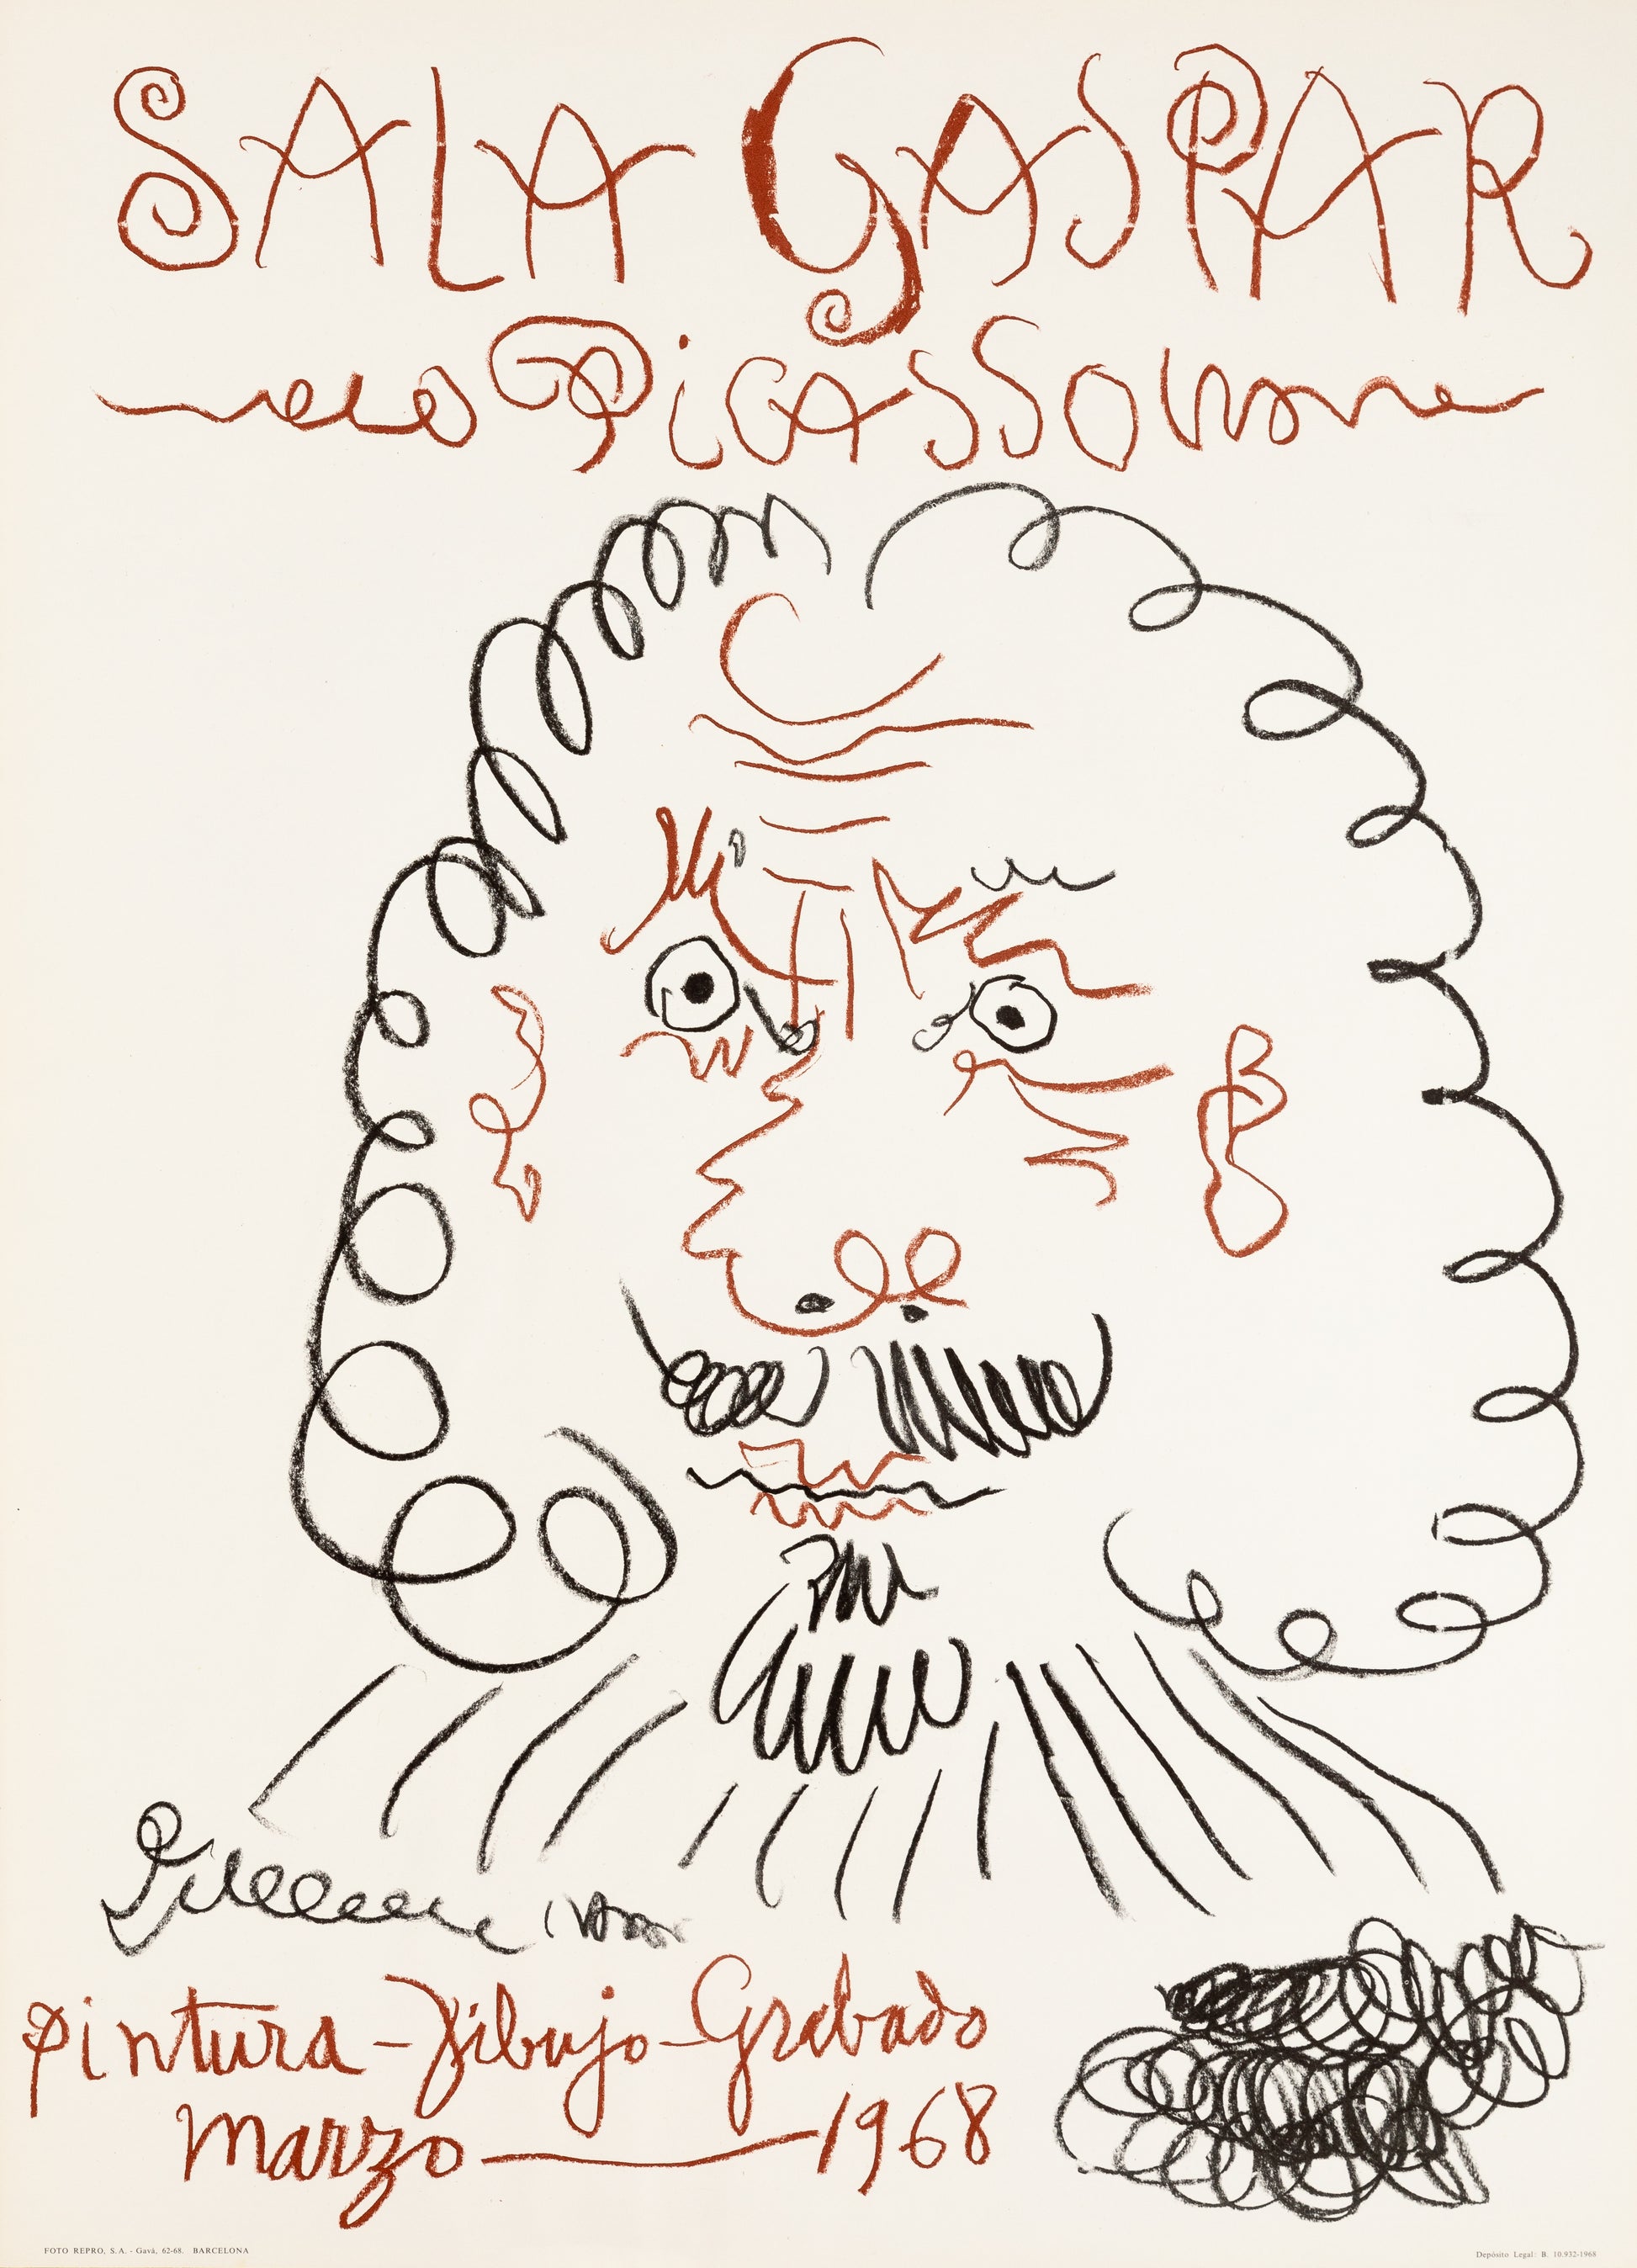 SALA GASPAR
Picasso
pintura - Dibujo - Grabado
Marzo — 1968
FOTO REPRO, S.A. - Gavá, 62-68. BARCELONA
Depósito Legal: B. 10.932-1968